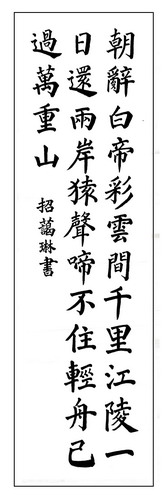 朝辭白帝彩雲間千里江陵一
日還兩岸猿聲啼不住輕舟已
過萬重山
招藹琳書